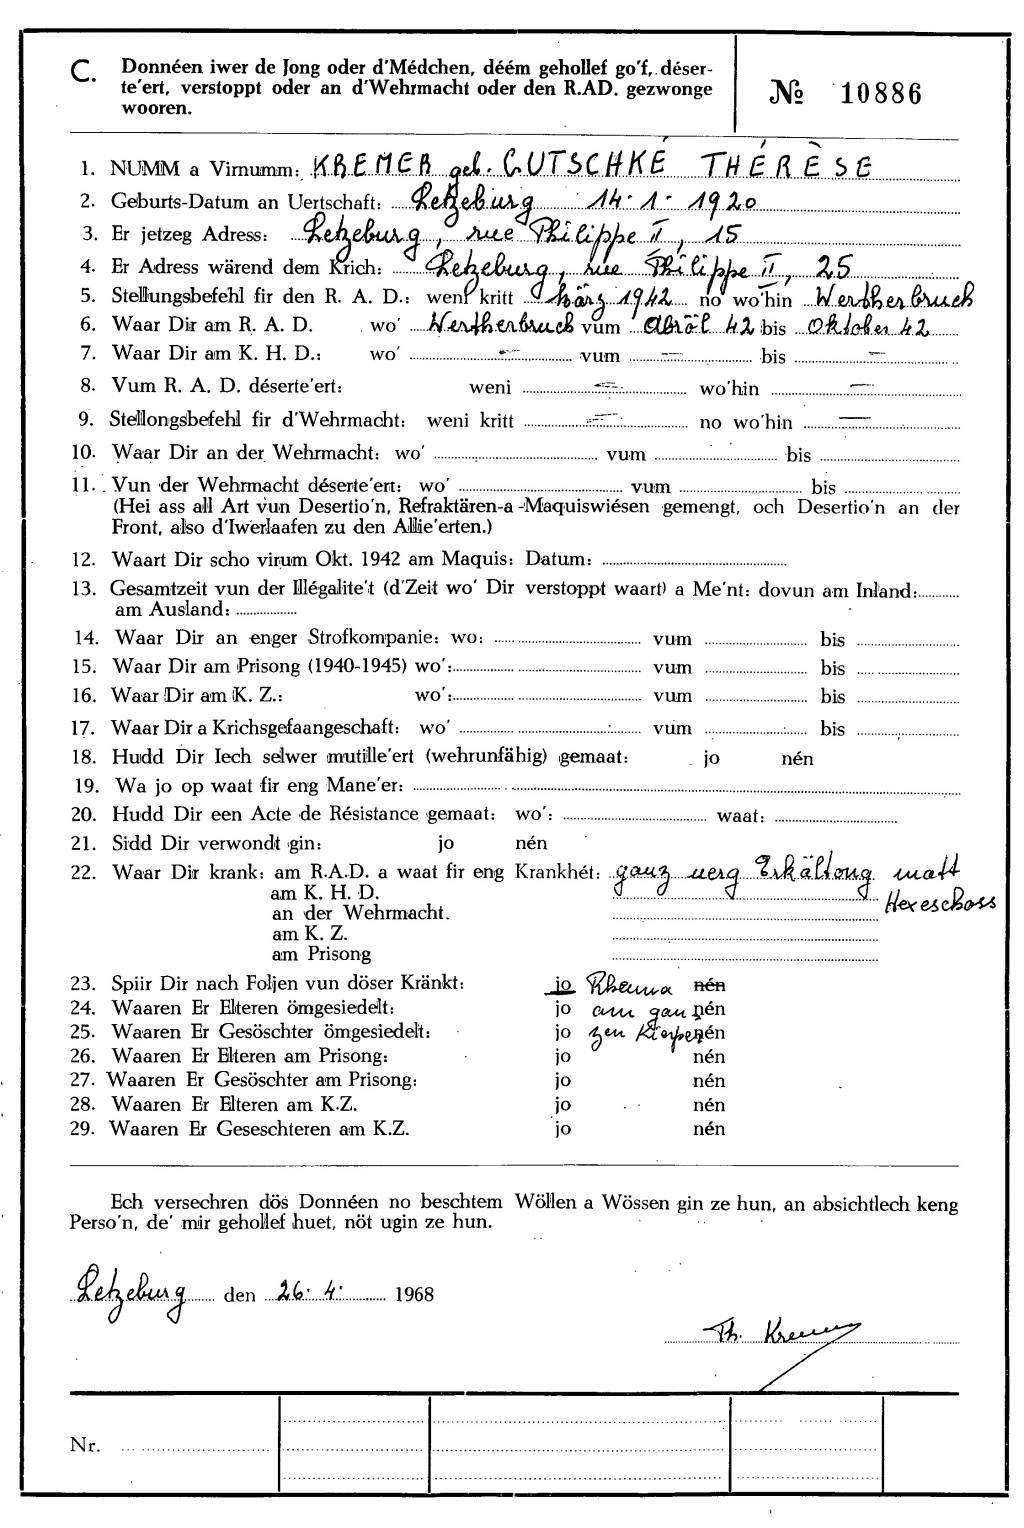 C. Donnéen iwer de Jong oder d'Médchen, déém gehollef go'f, déser-
te'ert, verstoppt oder an d'Wehrmacht oder den R.AD. gezwonge
wooren.
№ 10886
1. NUMM a Virnumm: KREMER geb. GUTSCHKÉ THÉRÈSE
2. Geburts-Datum an Uertschaft: Letzeburg 14.1.1920
3. Er jetzeg Adress: Letzeburg, rue Philippe II, 15
4. Er Adress wärend dem Krich: Letzeburg, rue Philippe II, 25
5. Stellungsbefehl fir den R. A. D.: weni kritt März 1942 no wo'hin Wertherbruch
6. Waar Dir am R. A. D. wo' Wertherbruch vum Abröl 42 bis Oktober 42
7. Waar Dir am K. H. D.: wo' — vum — bis —
8. Vum R. A. D. déserte'ert: weni — wo'hin —
9. Stellongsbefehl fir d'Wehrmacht: weni kritt — no wo'hin —
10. Waar Dir an der Wehrmacht: wo' vum bis
11. Vun der Wehrmacht déserte'ert: wo' vum bis
(Hei ass all Art vun Desertio'n, Refraktären-a-Maquiswiésen gemengt, och Desertio'n an der
Front, also d'Iwerlaafen zu den Allie'erten.)
12. Waart Dir scho virum Okt. 1942 am Maquis: Datum:
13. Gesamtzeit vun der Illégalite't (d'Zeit wo' Dir verstoppt waart) a Me'nt: dovun am Inland:
am Ausland:
14. Waar Dir an enger Strofkompanie: wo: vum bis
15. Waar Dir am Prisong (1940-1945) wo': vum bis
16. Waar Dir am K. Z.: wo': vum bis
17. Waar Dir a Krichsgefaangeschaft: wo' vum bis
18. Hudd Dir Iech selwer mutille'ert (wehrunfähig) gemaat: jo nén
19. Wa jo op waat fir eng Mane'er:
20. Hudd Dir een Acte de Résistance gemaat: wo': waat:
21. Sidd Dir verwondt gin: jo nén
22. Waar Dir krank: am R.A.D. a waat fir eng Krankhét: ganz uerg Erkältong matt
am K. H. D. Hexeschoss
an der Wehrmacht.
am K. Z.
am Prisong
23. Spiir Dir nach Foljen vun döser Kränkt: jo Rheuma nén
24. Waaren Er Elteren ömgesiedelt: jo am gan nén
25. Waaren Er Gesöschter ömgesiedelt: jo zen Kierper nén
26. Waaren Er Elteren am Prisong: jo nén
27. Waaren Er Gesöschter am Prisong: jo nén
28. Waaren Er Elteren am K.Z. jo nén
29. Waaren Er Geseschteren am K.Z. jo nén
Ech versechren dös Donnéen no beschtem Wöllen a Wössen gin ze hun, an absichtlech keng
Perso'n, de' mir gehollef huet, nöt ugin ze hun.
Letzeburg den 26.4. 1968
Th. Kremer
Nr.